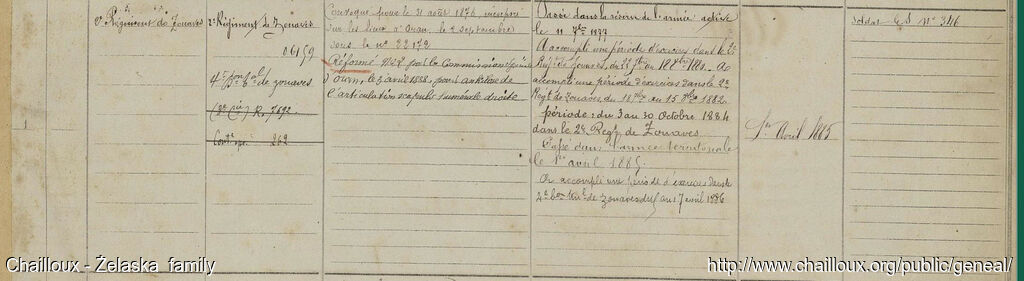 2e Régiment de Zouaves
2e Régiment de Zouaves
06159
4e bon de zouaves
R. 7592
262
Convoqué pour le 31 août 1876, incorporé
sur les lieux à Oran, le 2 septembre
sous le no 22172
Réformé No 2 par la Commission spéciale
d'Oran, le 3 avril 1888, pour ankilose de
l'articulation scapulo humérale droite
Passé dans la réserve de l'armée active
le 11 7bre 1877
A accompli une période d'exercices dans le 2e
Regt de Zouaves, du
accompli une période d'exercices dans le 2e
Regt de Zouaves, du 18 au 15 8bre 1882.
période: du 3 au 30 Octobre 1884
dans le 2e Regt de Zouaves
Passé dans l'armée territoriale
le 1er avril 1885.
A accompli une période d'exercices dans le
de zouaves du au 7 avril 1886
1er Avril 1885
Soldat No 346
1
Chailloux - Żelaska family
http://www.chailloux.org/public/geneal/